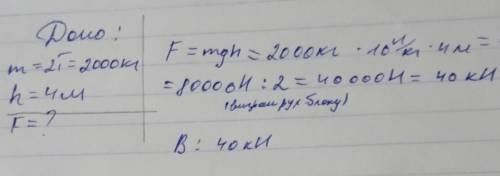 Дано:
m=2т=2000кг
h=4м
F=?
F=mgh=2000кг · 10 н/кг · 4м=
=80000Н:2=40000Н=40кН
(виграш рух блоку)
В: 40кН